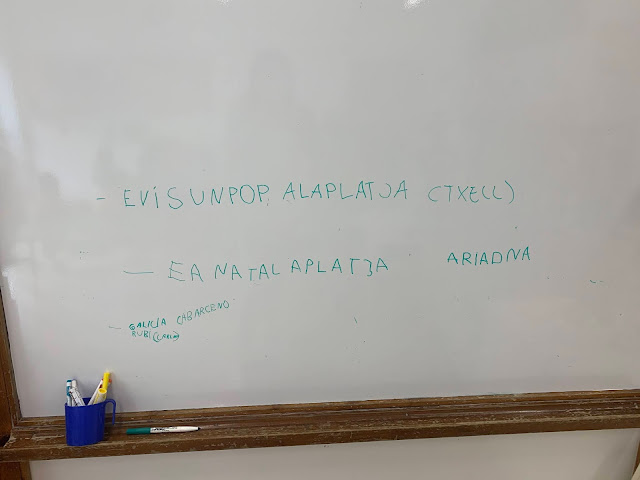 - EVISUNPOP, ALAPLATJA (TXELL)
- EA NATAL APLATJA ARIADNA
- GALICIA CABARCENO
RUBI (CARLA)